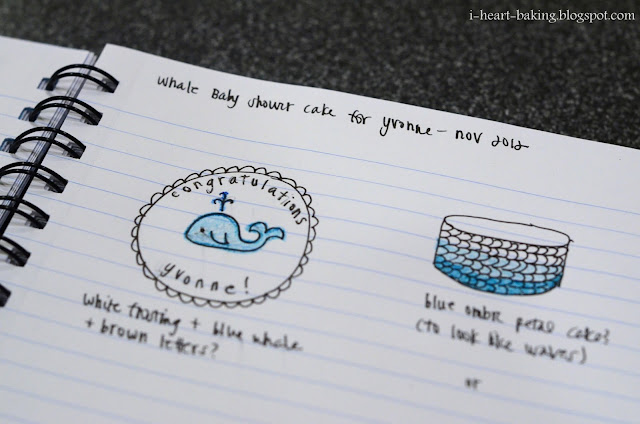 i-heart-baking.blogspot.com
Whale Baby Shower Cake for Yvonne - nov 2012
congratulations
yvonne!
white frosting + blue whale
+ brown letters?
blue ombre petal cake?
(to look like waves)
or